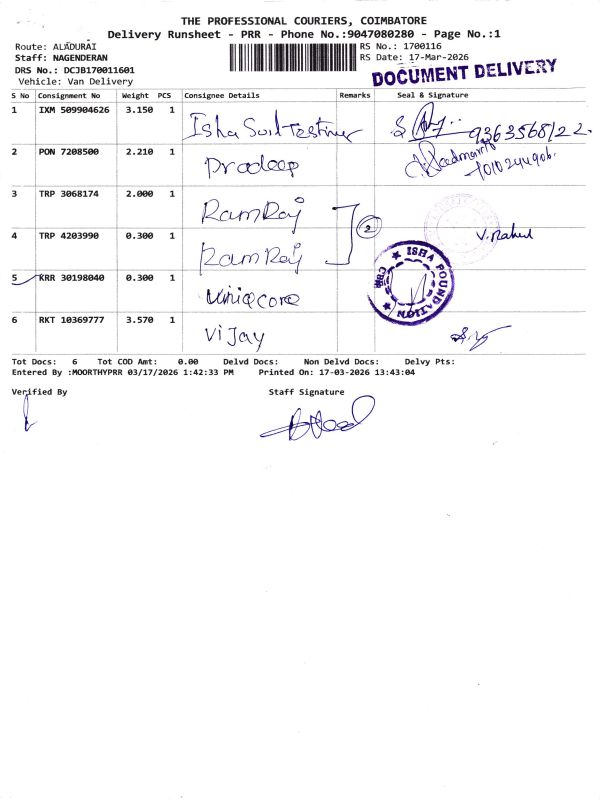 THE PROFESSIONAL COURIERS, COIMBATORE
Delivery Runsheet - PRR - Phone No.:9047080280 - Page No.:1
Route: ALADURAI
RS No.: 1700116
Staff: NAGENDERAN
RS Date: 17-Mar-2026
DRS No.: DCJB170011601
Vehicle: Van Delivery
DOCUMENT DELIVERY
S No Consignment No Weight PCS Consignee Details Remarks Seal & Signature
1 IXM 509904626 3.150 1 Isha Soil Testing 9363568122
2 PON 7208500 2.210 1 Pradeep
3 TRP 3068174 2.000 1 RamRaj 2
4 TRP 4203990 0.300 1 RamRaj V. Rahul
ISHA FOUNDATION
CBE
5 KRR 30198040 0.300 1 Uniqcore
6 RKT 10369777 3.570 1 Vijay
Tot Docs: 6 Tot COD Amt: 0.00 Delvd Docs: Non Delvd Docs: Delvy Pts:
Entered By :MOORTHYPRR 03/17/2026 1:42:33 PM Printed On: 17-03-2026 13:43:04
Verified By Staff Signature